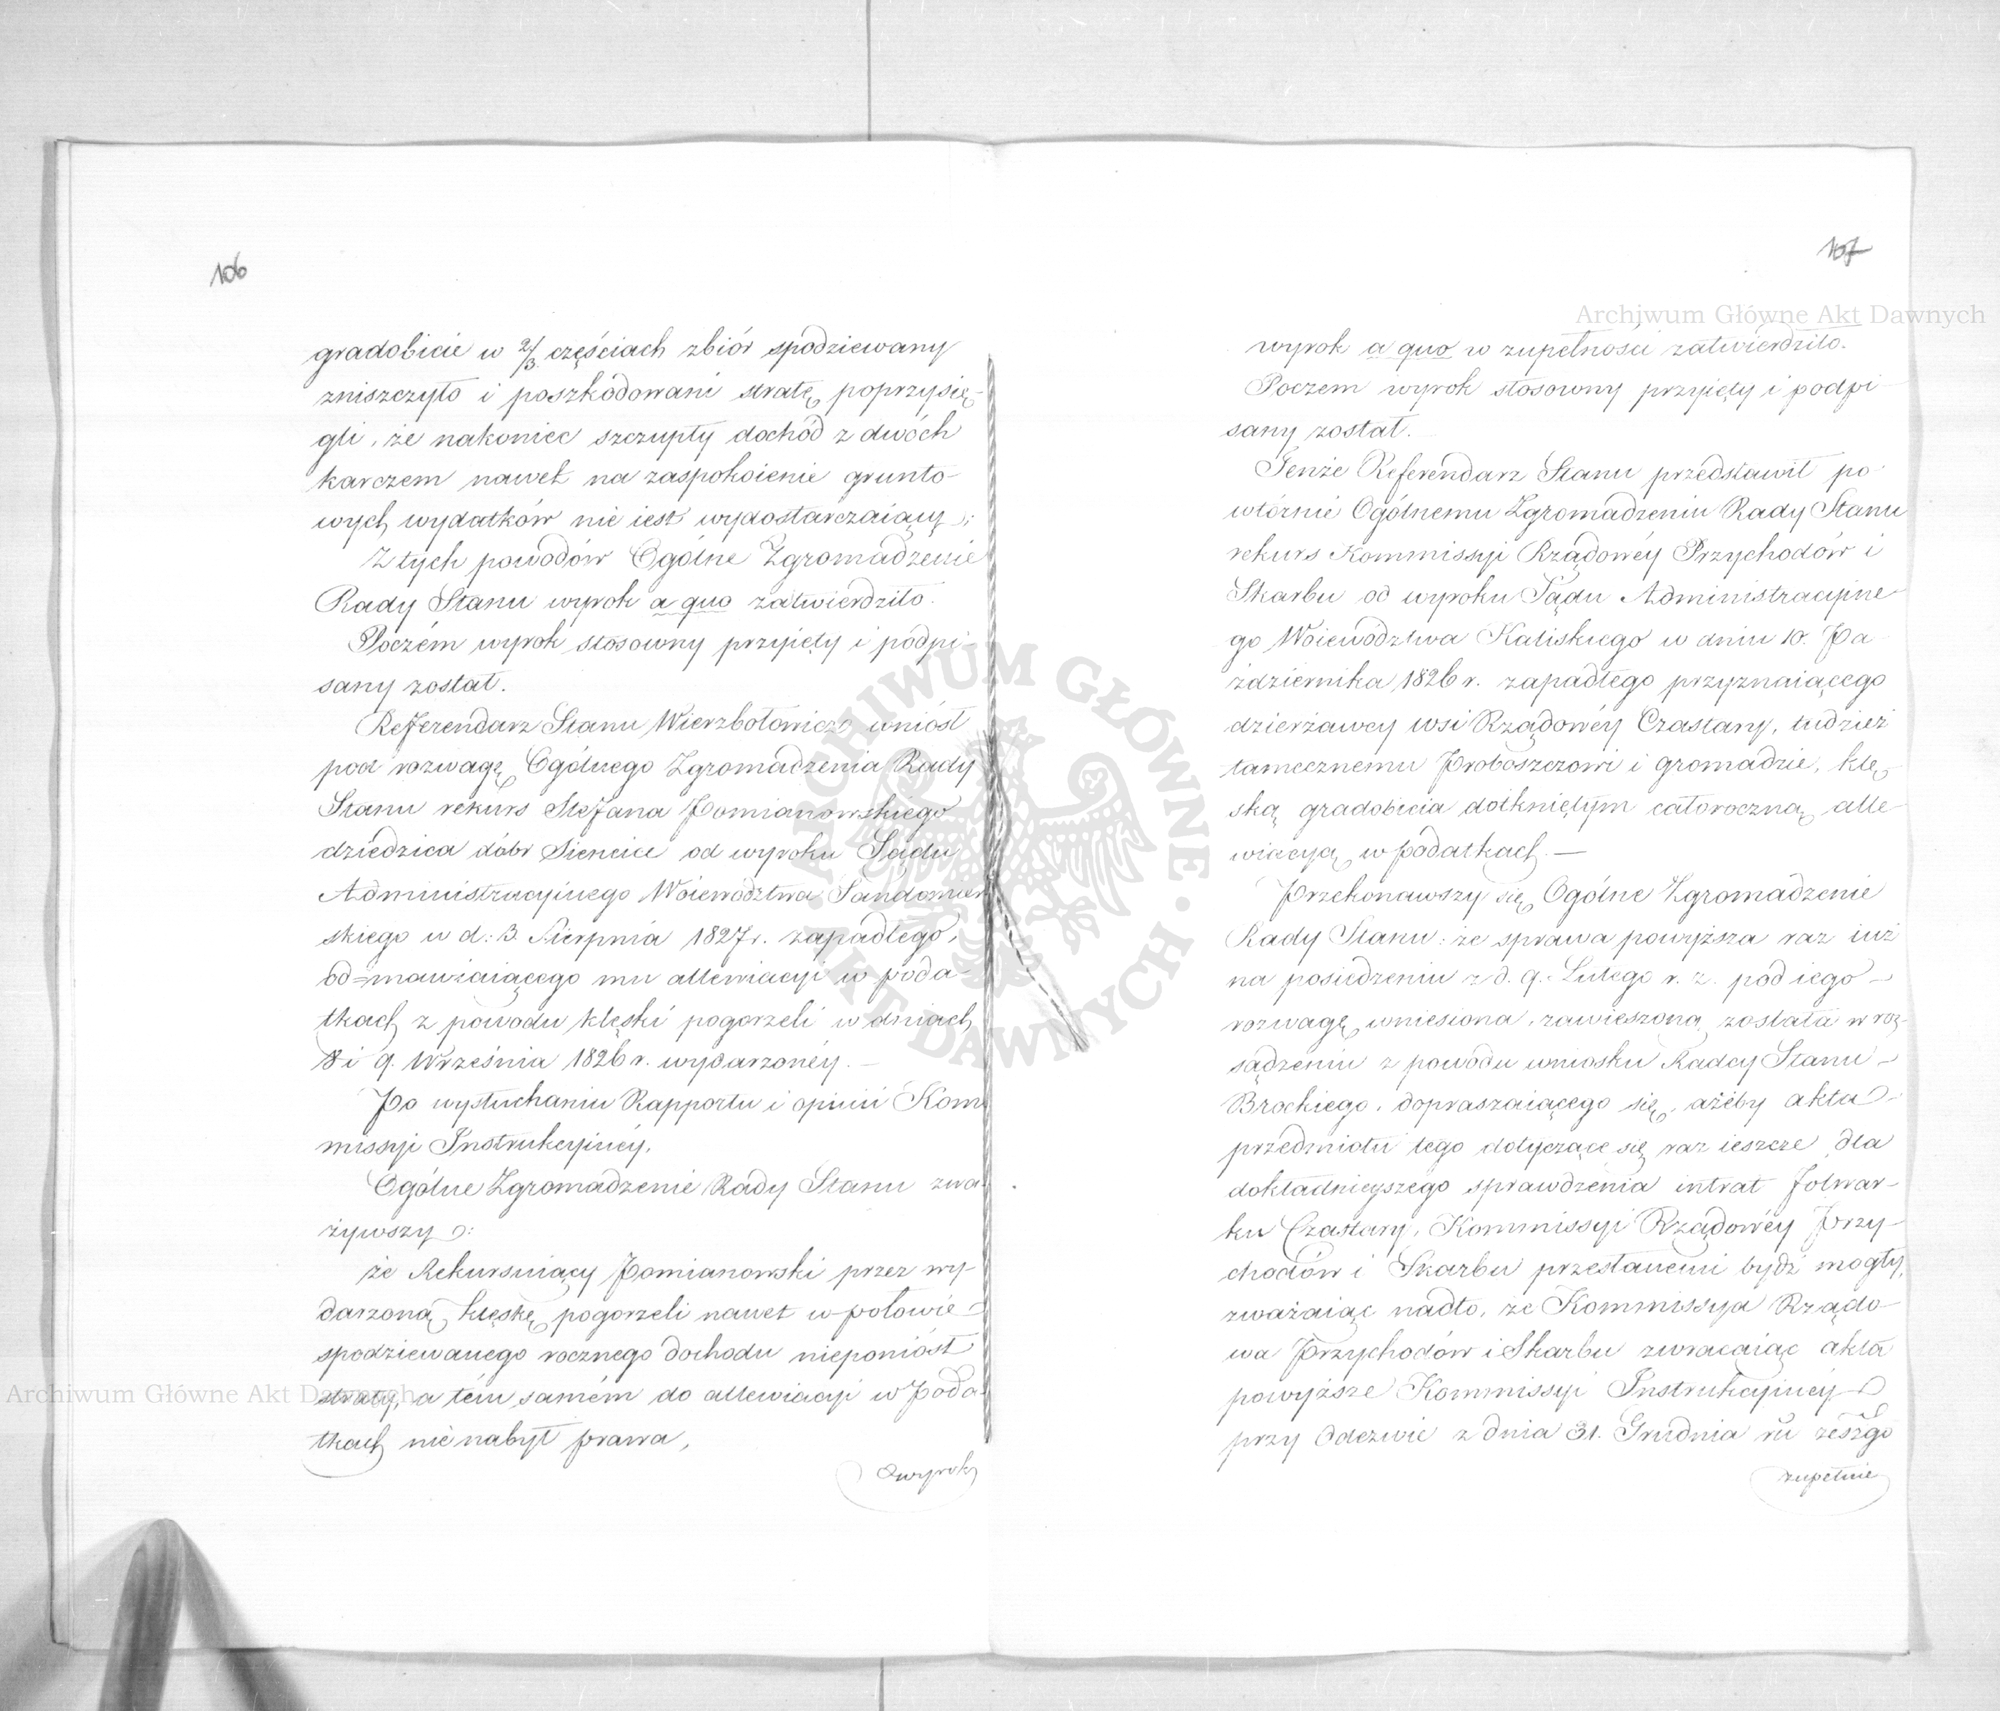 106
gradobicie w 2/3. częściach zbiór spodziewany
zniszczyło i poszkodowani stratę poprzysię-
gli, że nakoniec szczupły dochód z dwóch
karczem nawet na zaspokoienie grunto-
wych wydatków nie iest wydostarczaiący;
Z tych powodów Ogólne Zgromadzenie
Rady Stanu wyrok a quo zatwierdziło.
Poczém wyrok stosowny przyięty i podpi-
sany został.
Referendarz Stanu Wierzbołowicz wniósł
pod rozwagę Ogólnego Zgromadzenia Rady
Stanu rekurs Stefana Pomianowskiego
dziedzica dóbr Siencice od wyroku Sądu
Administracyinego Woiewództwa Sandomier
skiego w d: 3. Sierpnia 1827 r. zapadłego,
od=mawiaiącego mu allewiacyi w poda-
tkach z powodu klęski pogorzeli w dniach
8 i 9. Września 1826 r. wydarzonéy. —
Po wysłuchaniu Rapportu i opinii Kom
missyi Instrukcyinéy,
Ogólne Zgromadzenie Rady Stanu zwa-
żywszy:
że Rekursuiący Pomianowski przez wy-
darzoną klęskę pogorzeli nawet w połowie
spodziewanego rocznego dochodu nieponiósł
straty, a tém samém do allewiacyi w poda-
tkach nie nabył prawa,
wyrok
107
wyrok a quo w zupełności zatwierdziło.
Poczem wyrok stosowny przyięty i podpi
sany został.
Tenże Referendarz Stanu przedstawił po-
wtórnie Ogólnemu Zgromadzeniu Rady Stanu
rekurs Kommissyi Rządowéy Przychodów i
Skarbu od wyroku Sądu Administracyine-
go Woiewództwa Kaliskiego w dniu 10. Pa-
ździernika 1826 r. zapadłego przyznaiącego
dzierżawcy wsi Rządowéy Czastary, tudzież
tamecznemu Proboszczowi i gromadzie, klę-
ską gradobicia dotkniętym całoroczną alle-
wiacyą w podatkach. —
Przekonawszy się Ogólne Zgromadzenie
Rady Stanu: że sprawa powyższa raz iuż
na posiedzeniu z d. 9. Lutego r. z. pod iego
rozwagę wniesiona, zawieszoną została w roz-
sądzeniu z powodu wniosku Radcy Stanu
Brockiego, dopraszaiącego się, ażeby akta
przedmiotu tego dotyczące się raz ieszcze dla
dokładnieyszego sprawdzenia intrat folwar-
ku Czastary, Kommissyi Rządowéy Przy-
chodów i Skarbu przesłanemi bydź mogły,
zważaiąc nadto, że Kommissya Rządo-
wa Przychodów i Skarbu zwracaiąc akta
powyższe Kommissyi Instrukcyinéy
przy Odezwie z dnia 31. Grudnia ru zeszłgo
zupełnie
Archiwum Główne Akt Dawnych
Archiwum Główne Akt Dawnych
ARCHIWUM GŁÓWNE · AKT DAWNYCH ·